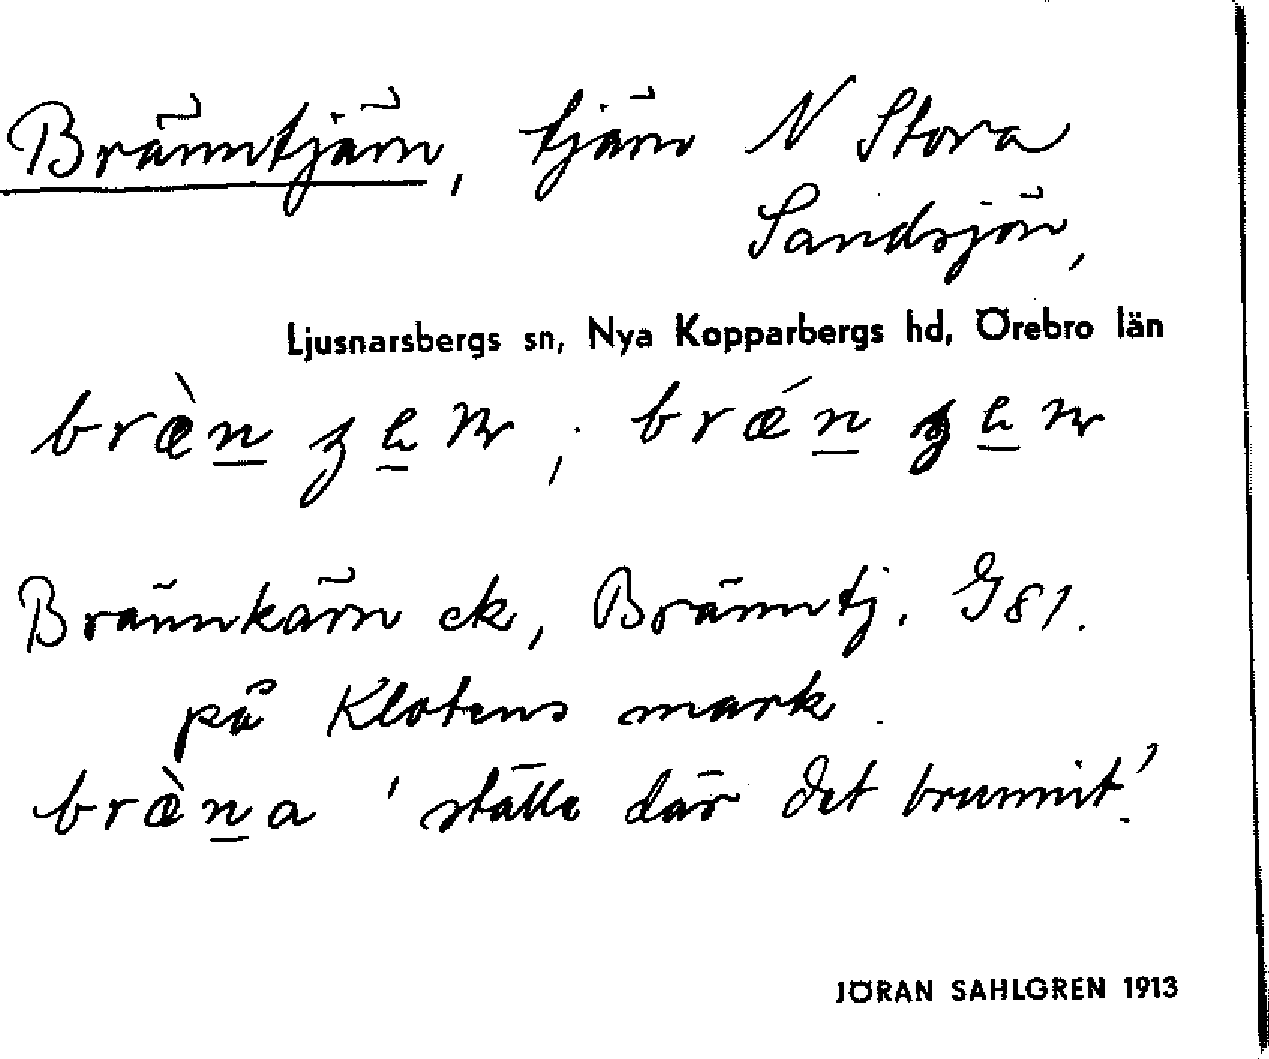 Bränntjärn, tjärn N Stora
Sandsjön,
Ljusnarsbergs sn, Nya Kopparbergs hd, Örebro län
Brännkärn ek, Bränntj. G 81.
på Klotens mark.
bræ̀n̲a 'ställe där det brunnit'.
JÖRAN SAHLGREN 1913